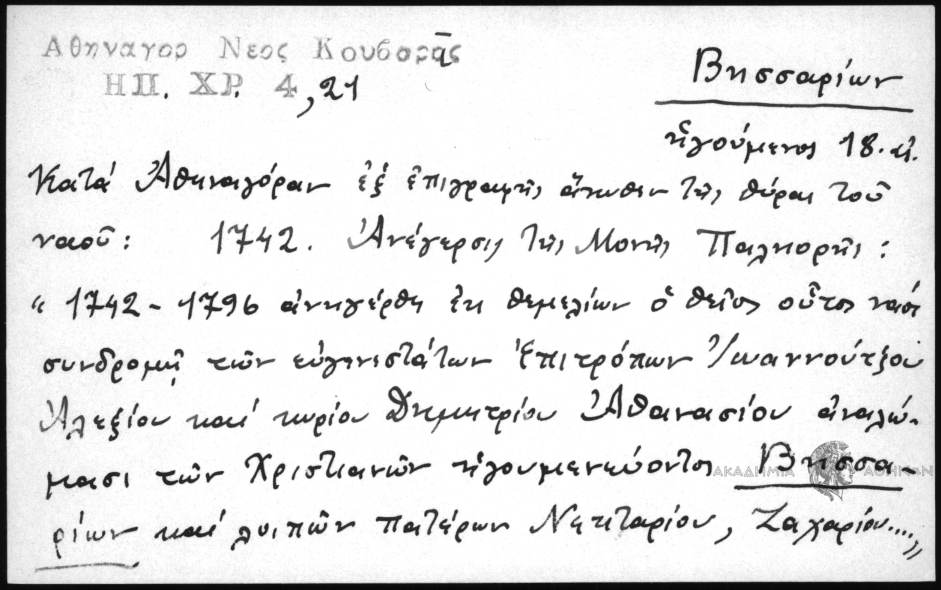 Αθηναγορ Νεος Κουβαρᾶς
ΗΠ. ΧΡ. 4, 21
Βησσαρίων
ἡγούμενος 18. αἰ.
Κατά Ἀθηναγόραν ἐξ ἐπιγραφῆς ἄνωθεν τῆς θύρας τοῦ
ναοῦ: 1742. Ἀνέγερσις τῆς Μονῆς Παλιορῆς:
“ 1742 - 1796 ἀνηγέρθη ἐκ θεμελίων ὁ θεῖος οὗτος ναός
συνδρομῇ τῶν εὐγενεστάτων Ἐπιτρόπων Ἰωαννούτζου
Ἀλεξίου καί κυρίου Δημητρίου Ἀθανασίου ἀναλώ-
μασι τῶν Χριστιανῶν ἡγουμενεύοντος Βησσα-
ρίων καί λοιπῶν πατέρων Νεκταρίου, Ζαχαρίου....,,
ΑΚΑΔΗΜΙΑ ΑΘΗΝΩΝ